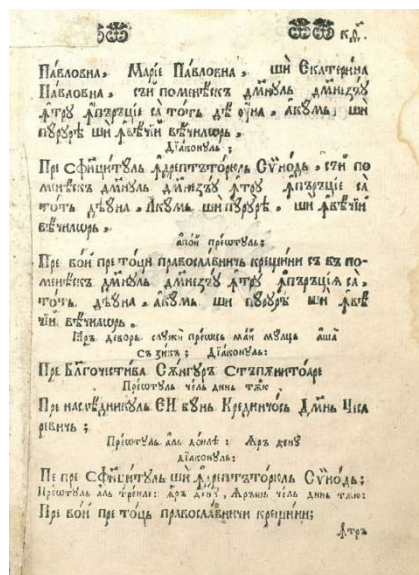 к҃ѳ.
Па́вловна, Марі́е Па́вловна, шѝ Екатери́на
Па́вловна, съ́й помене́ск дⷨнꙋль дⷨнеѕꙋ́ꙋ
ꙟ҆́тру ꙟ҆пъръці́е са́ то́тъ дѣ ꙋна, аку́мь, шѝ
пꙋ́рурѣ шѝ ꙟ҆́вѣчїй вѣ́чилѡрь,
Дїа́конꙋль:
Пре Сфи҃ци́тꙋль ꙟ҆дрептъто́рюль Сѷно́дь, съ́й по
мене́ск дⷨнꙋль дⷨнеѕꙋ́ꙋ ꙟ҆́тру ꙟ҆пъръці́е са́
то́тъ дѣꙋна, аку́мь шѝ пꙋ́рурѣ, шѝ ꙟ҆́вѣчїй
вѣ́чилѡрь,
апо́й пре́ѡтꙋль:
Пре во́й пре то́ци православ́ничь крещи́ни съ въ по-
мене́ск дⷨнꙋль дⷨнеѕꙋ́ꙋ ꙟ҆́тру ꙟ҆пъръці́я са́,
то́тъ, дѣꙋна, аку́мь шѝ пꙋ́рурѣ шѝ ꙟ҆́вѣ
чїй вѣ́чилѡрь,
Іаръ де́ворь слꙋжѝ пре́ѡць май мꙋлць аша̀
съ зи́къ; Дїа́конꙋль:
Пре Бл҃гочести́ва Си́нгꙋрꙋ Стъпжнито́аре
Пре́ѡтꙋль чель динь тѫ́ю
Пре наслѣ́дникꙋль ЕЍ бꙋнь Крединчо́сь Дⷨнь Чеса
реви́чь ;
Пре́ѡтꙋль аль до́иле : Ꙗръ де́нꙋ
дїа́конꙋль:
Пе пре Сфи҃ци́тꙋль шѝ ꙟ҆дрептъто́рюль Сѷно́дь;
Пре́ѡтꙋль аль тре́иле: ꙗръ де́нꙋ,
Пре во́й пре то́ць правосла́вничи крещи́ни;
ꙟ҆́тръ